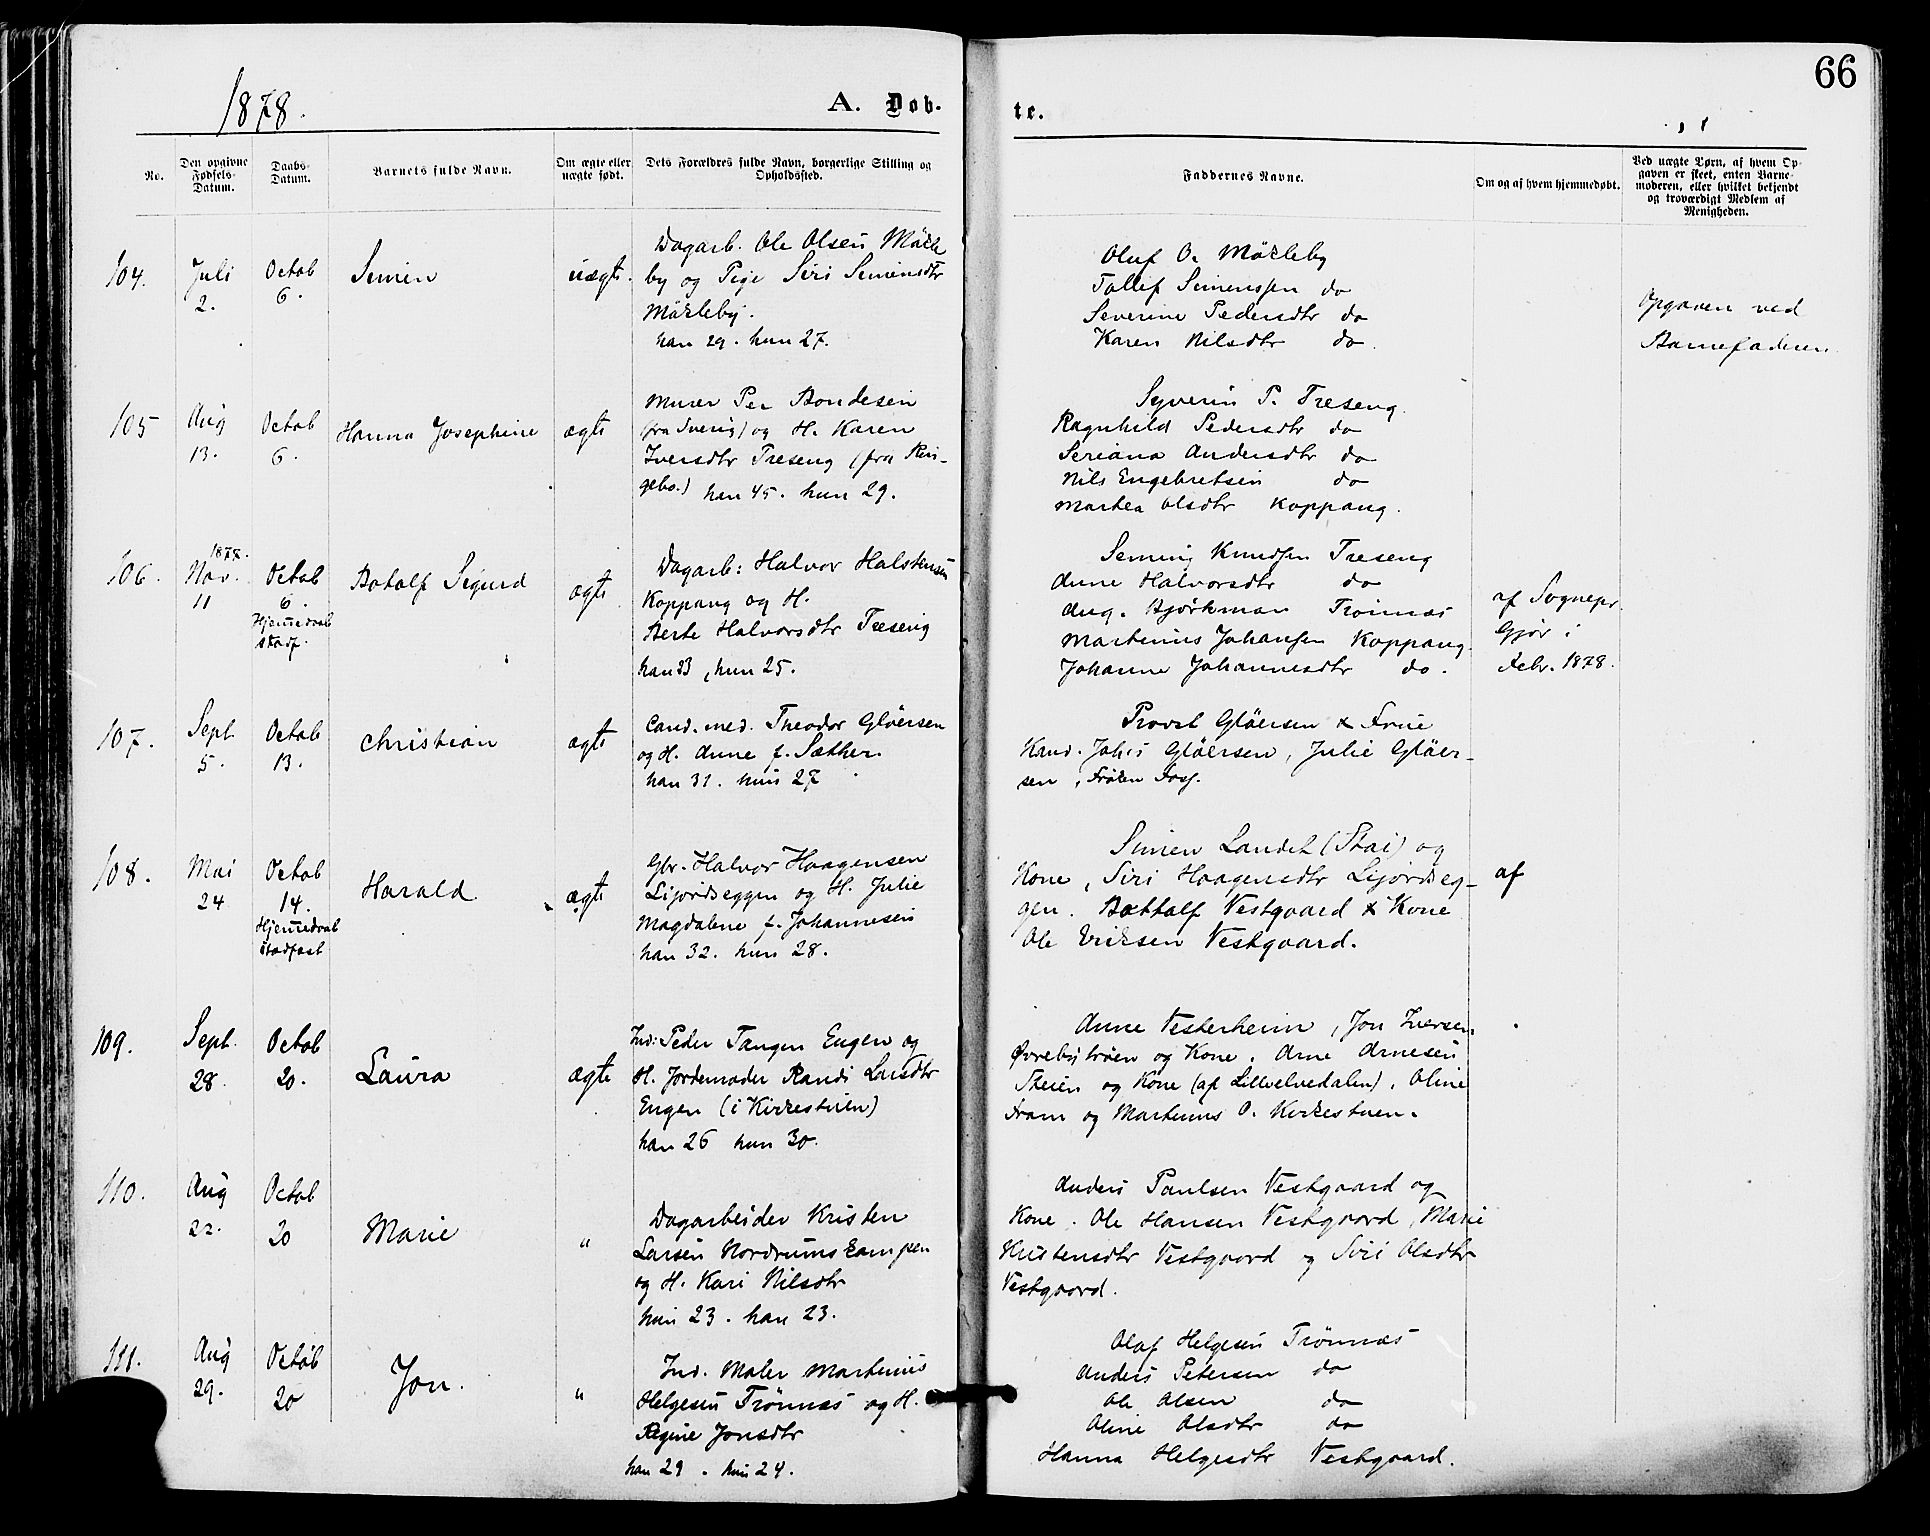 66
1878.
A. Døb-
te.
No.
Den opgivne Fødsels-Datum.
Daabs-Datum.
Barnets fulde Navn.
Om ægte eller uægte født.
Dets Forældres fulde Navn, borgerlige Stilling og Opholdssted.
Faddernes Navne.
Om og af hvem hjemmedøbt.
Ved uægte Børn, af hvem Opgaven er skeet, enten Barnemoderen, eller hvilket bekjendt og troværdigt Medlem af Menigheden.
104.
Juli
2.
Octob
6.
Simen
uægte.
Dagarb. Ole Olsen Mörk
by og Pige Siri Simensdtr
Mörkeby.
han 29. hun 27.
Oluf O. Mörkeby
Tollef Simenssen do
Severine Pedersdtr do
Karen Nilsdtr do.
Opgaven ved
Barnefaderen.
105
Aug
13.
Octob
6.
Hanna Josephine
ægte
Murer Per Bondesen
(fra Sverig) og H. Karen
Iversdtr Treseng (fra Rin-
gebo.) han 45. hun 29.
Syverin P. Treseng.
Ragnhild Pedersdtr do
Seriana Andersdtr do
Nils Engebretsen do
Marthea Olsdtr Koppang.
106.
1877.
Nov.
11
Octob
6.
Hjemmedaab
stadf.
Botolf Sigurd
ægte
Dagarb: Halvor Halstensen
Koppang og H.
Berte Halvorsdtr Treseng
han 33, hun 25.
Seming Knudsen Treseng
Anne Halvorsdtr do
Aug. Bjørkman Trönnæs
Martinius Johansen Koppang.
Johanne Johannesdtr do.
af Sognepr.
Gjør i
Febr. 1878.
107.
Sept.
5.
Octob
13.
Christian
ægte
Cand. med. Theodor Glöersen
og H. Anne f. Sæther.
han 31. hun 27
Provst Glöersen & Frue
Kand. Johs Glöersen, Julie Glöer-
sen, Fröken
108.
Mai
24
Octob
14.
Hjemmedaab
stadfæst
Harald
ægte
Gbr. Halvor Haagensen
Lijordseggen og H. Julie
Magdalene f. Johannesen
han 32. hun 28.
Simen Landet (Stai) og
Kone, Siri Haagensdtr Lijordseg-
gen. Bottolf Vestgaard & Kone
Ole Eriksen Vestgaard.
af
109.
Sept.
28.
Octob
20.
Laura
ægte
Ind: Peder Tangen Engen og
H. Jordemoder Randi Larsdtr
Engen (i Kirkestuen)
han 26 hun 30.
Anne Vesterheim, Jon Iversen
Øvrebytröen og Kone. Arne Arnesen
Steien og Kone (af Lilleelvedalen). Oline
Fram og Martinus O. Kirkestuen.
110.
Aug
22.
Octob
20
Marie
"
Dagarbeider Kristen
Larsen Nordrumskampen
og H. Kari Nilsdtr
hun 23. han 23.
Anders Paulsen Vestgaard og
Kone. Ole Hansen Vestgaard, Marie
Kristensdtr Vestgaard og Siri Olsdtr
Vestgaard.
111.
Aug
29.
Octob
20
Jon.
"
Ind. Maler Martinius
Helgesen Trönnæs og H.
Regine Jonsdtr
han 29. hun 24.
Olaf Helgesen Trönnæs
Anders Petersen do
Ole Olsen do
Oline Olsdtr do
Hanna Helgesdtr Vestgaard.